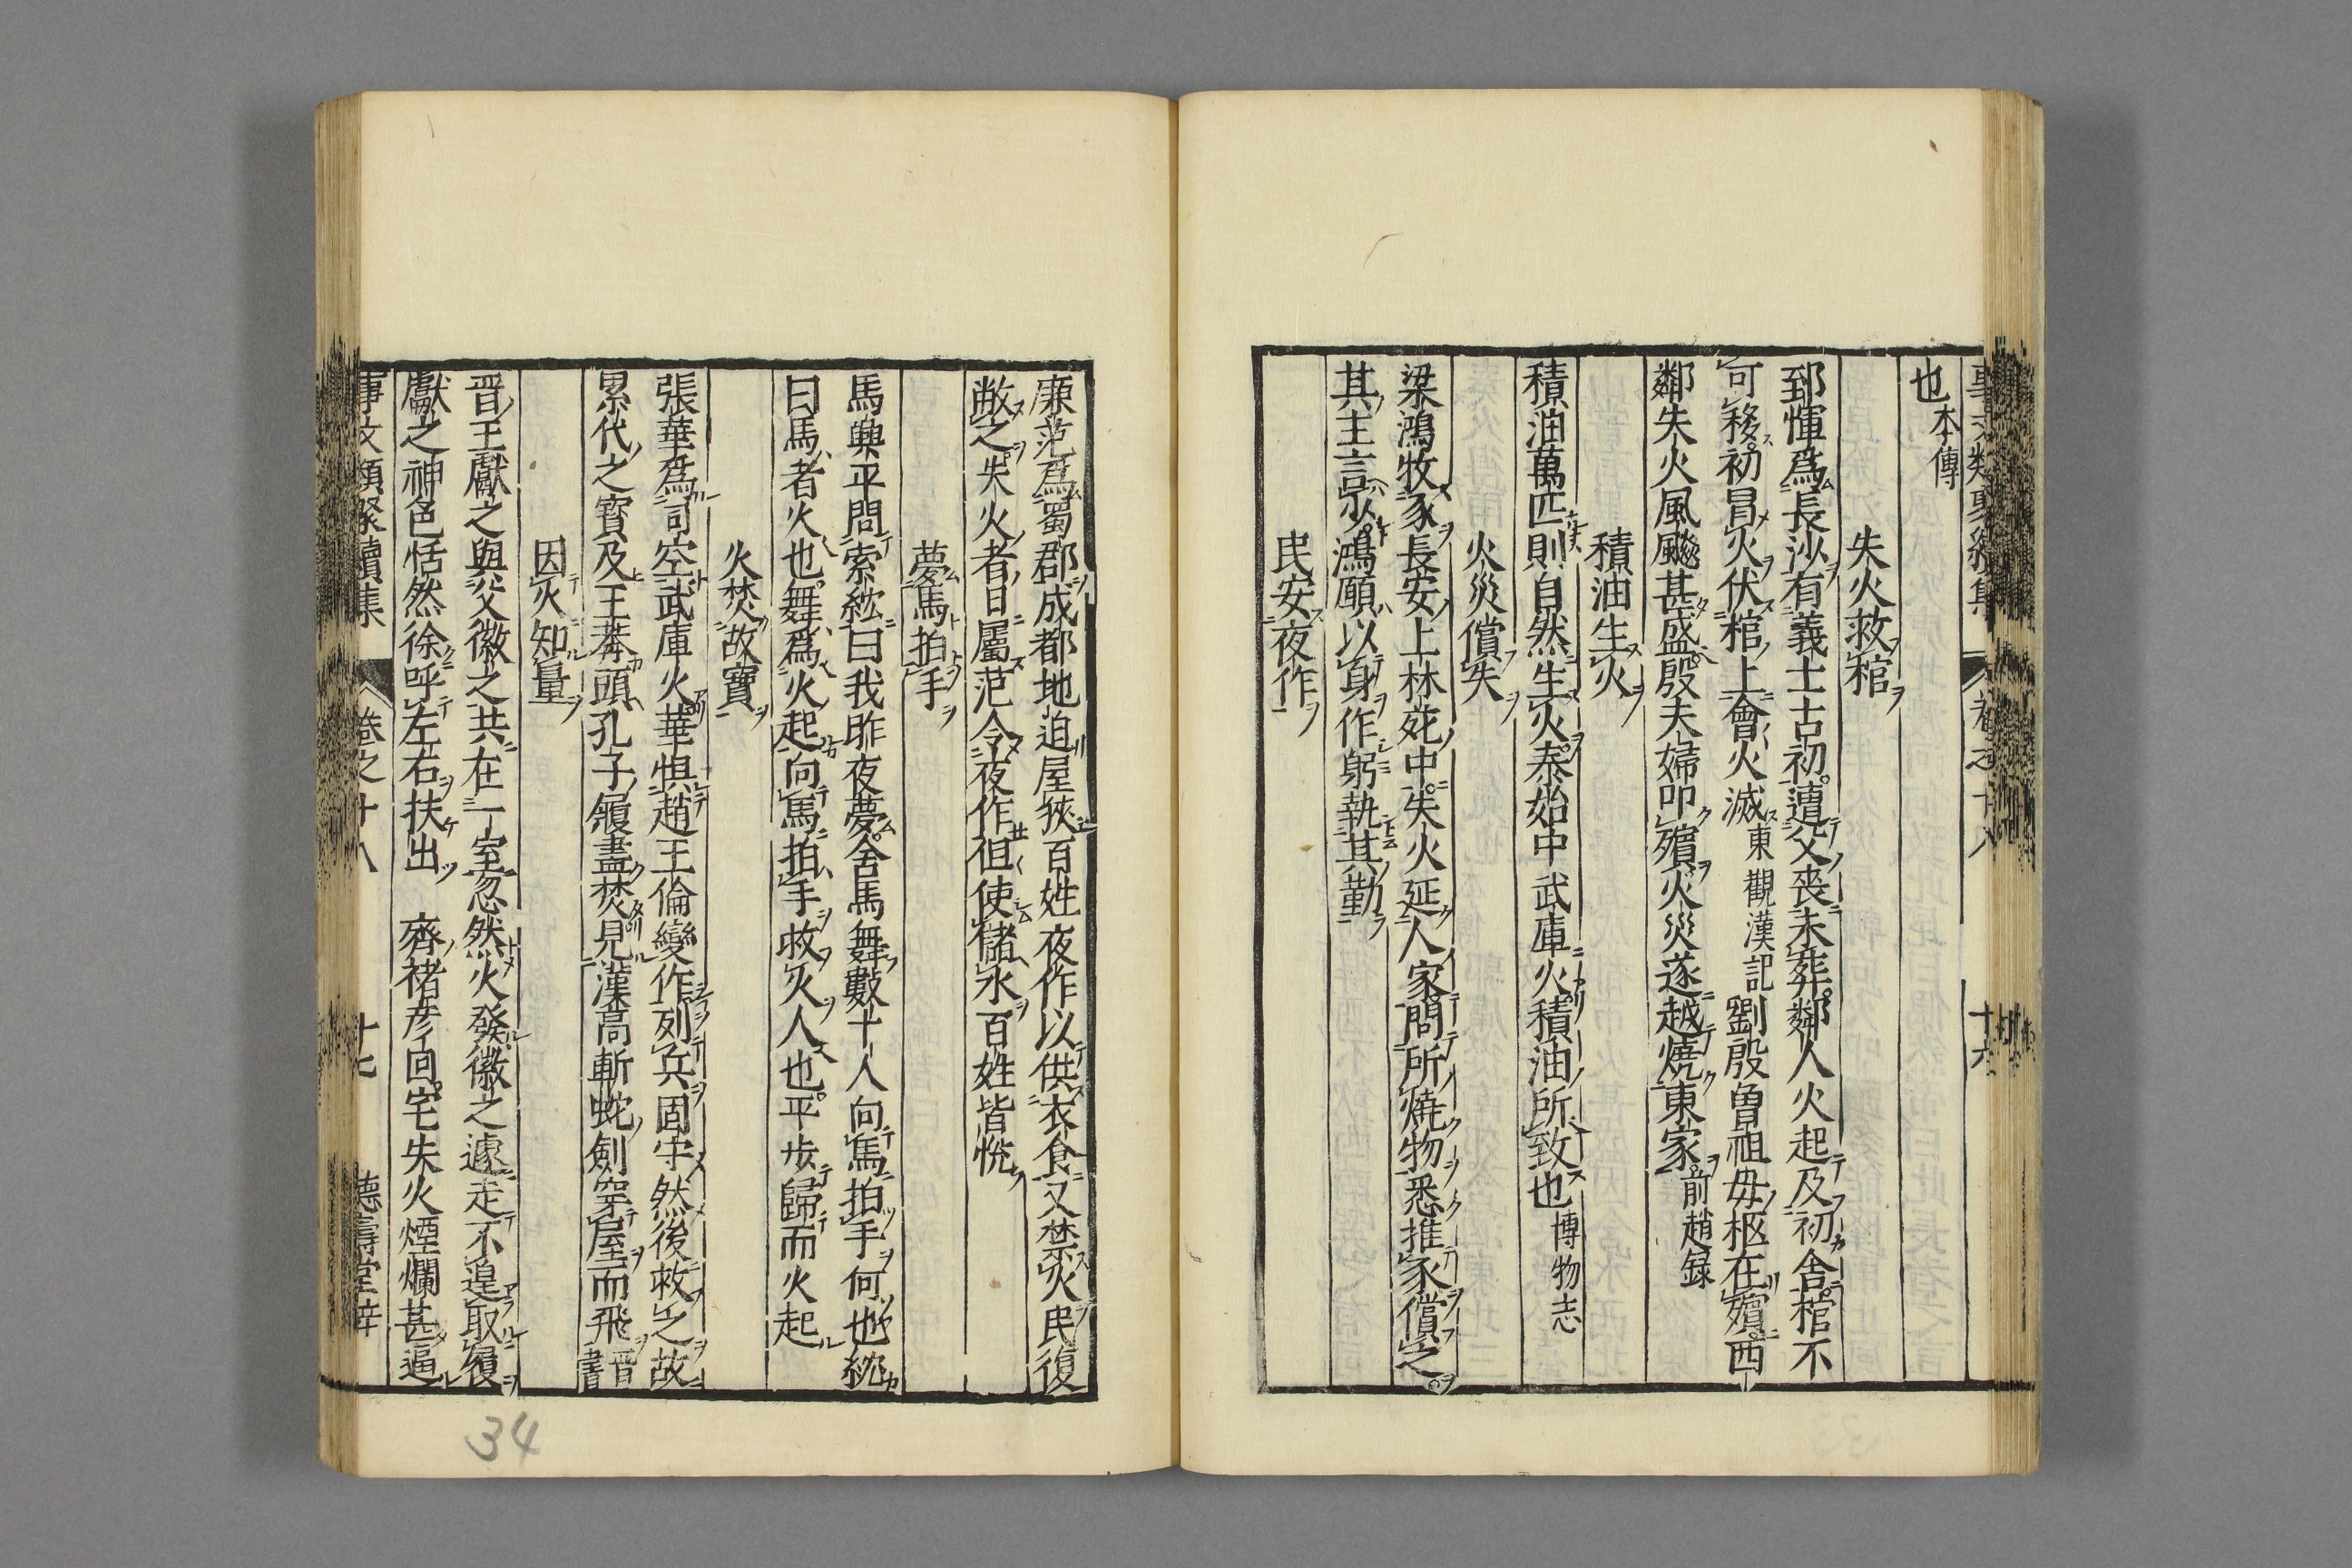 也本傳
失火救棺
郅惲爲長沙有義士古初遭父喪未葬鄰人火起及初舍棺不
可移初冒火伏棺上會火滅東觀漢記劉殷曽祖母柩在殯西
鄰失火風颷甚盛殷夫婦叩殯火災遂越燒東家前趙録
積油生火
積油萬匹則自然生火泰始中武庫火積油所致也博物志
火災償失
梁鴻牧豕長安上林苑中失火延人家問所燒物悉推豕償之
其主言少鴻願以身作躬執其勤
民安夜作
廉范爲蜀郡成都地迫屋狹百姓夜作以供衣食又禁火民復
蔽之失火者日屬范令夜作但使儲水百姓皆悅
夢馬拍手
馬輿平問索紞曰我昨夜夢舍馬舞數十人向馬拍手何也紞
曰馬者火也舞爲火起向馬拍手救火人也平步歸而火起
火焚故寶
張華爲司空武庫火華惧趙王倫變作列兵固守然後救之故
累代之寶及王莽頭孔子屨盡焚見漢高斬蛇劍穿屋而飛晋書
因火知量
晋王獻之與父徽之共在一室忽然火發徽之遽走不遑取履
獻之神色恬然徐呼左右扶出　齊褚彦回宅失火煙爛甚逼
事文類聚續集　卷之十八　十七　德壽堂梓